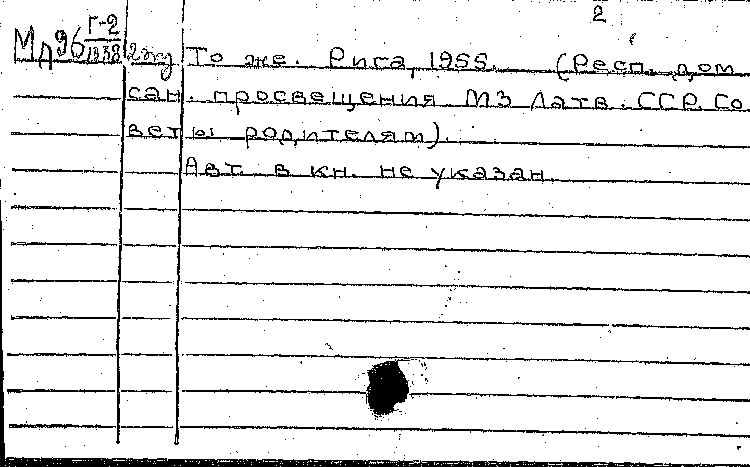 2
Мд96 Г-2
1338 2жд То же. Рига, 1955. (Респ. дом
сан. просвещения МЗ Латв. ССР. Со
веты родителям).
Авт. в кн. не указан.